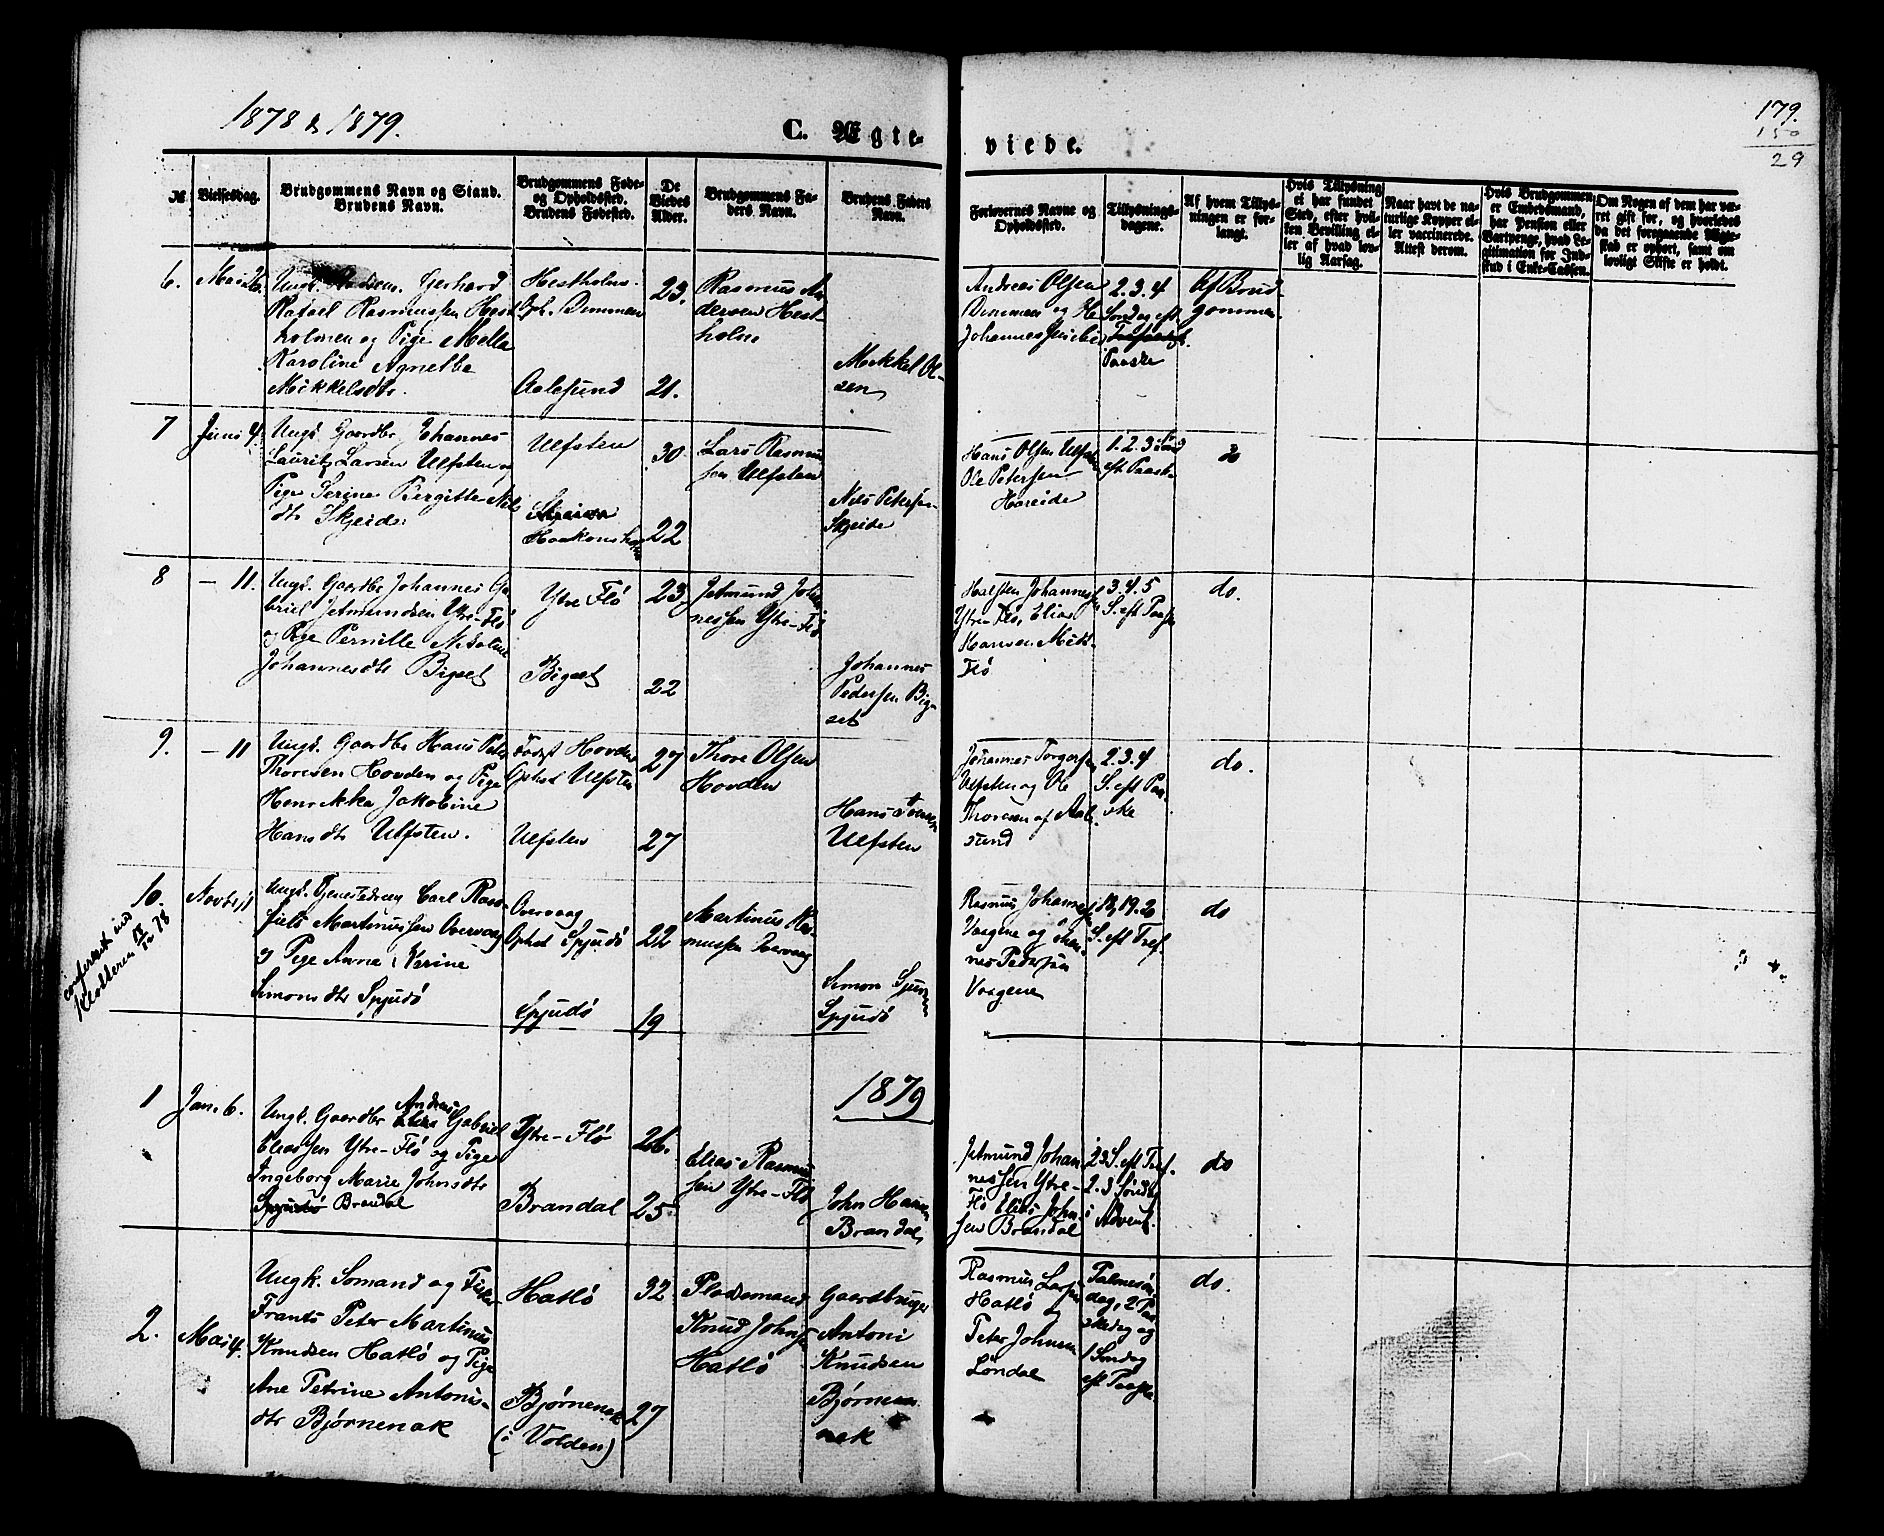 1878 & 1879.
C. Ægte-
viede.
179.
150
29
№
Vielsesdag.
Brudgommens Navn og Stand.
Brudens Navn.
Brudgommens Føde-
og Opholdssted.
Brudens Fødested.
De
Viedes
Alder.
Brudgommens Fa-
ders Navn.
Brudens Faders
Navn.
Forlovernes Navne og
Opholdssted.
Tillysnings-
dagene.
Af hvem Tillys-
ningen er for-
langt.
Hvis Tillysning
ei har fundet
Sted, efter hvil-
ken Bevilling el-
ler af hvad lov-
lig Aarsag.
Naar havt de na-
turlige Kopper el-
ler vaccinerede.
Attest derom.
Hvis Brudgommen
er Embedsmand,
har Pension eller
Vartpenge, hvad Le-
gitimation for Ind-
skud i Enke-Cassen.
Om Nogen af dem har væ-
ret gift før, og hvorledes
da det foregaaende Ægte-
skab er ophørt, samt om
lovligt Skifte er holdt.
6.
Mai 26.
Ungk. Gerhard
Rafael Rasmussen Hest-
holmen og Pige Mella
Karoline Agnethe
Mikkelsdtr.
Hestholm.
Oph. Dimmen
Aalesund
23.
21.
Rasmus An
dersen Hest-
holm
Mikkel Ol-
sen
Andreas Olsen
Dimmen og
Johannes
2.3.4
Søndag eft.
Paaske
Af Brud-
gommen
7
Juni 4.
Ungk. Gaardbr. Johannes
Lauritz Larsen Ulfsten og
Pige Serine Bergitte Nils
dtr Skjeide
Ulfsten
Haakonsholm
30
22
Lars Rasmus
sen Ulfsten
Nils Petersen
Skjeide
Hans Olsen Ulfsten
Ole Petersen
Hareide
1.2.3 Sønd
eft Paaske
do
8
— 11.
Ungk. Gaardbr Johannes Ga-
briel Jetmundsen Ytre-Flø
og Pige Pernille Nikoline
Johannesdtr Bigset
Ytre Flø
Bigset
23
22
Jetmund Johan
nessen Ytre-Flø
Johannes
Pedersen Big-
set
Halsten Johannessen
Ytre Flø, Elias
Hansen Midt-
Flø
3.4.5
S. eft Paaske
do.
9.
— 11
Ungk. Gaardbr Hans Peter
Thoresen Hovden og Pige
Henrikka Jakobine
Hansdtr Ulfsten.
Født Hovden
Ophst Ulfsten
Ulfsten
27
27
Thore Olsen
Hovden
Hans Iversen
Ulfsten
Johannes Torgersen
Ulfsten og Ole
Thoresen af Aale
sund
2.3.4
S. eft Paa-
ske
do.
10.
Novbr 11
confereret med
Klokkeren 78
Ungk. Tjenestedreng Carl Ras-
Martinussen Overvaag
og Pige Anna Karine
Simonsdtr Spjudø
Overvaag
Ophst Spjudø
Spjudø
22
19
Martinus Ras
mussen Overvaag
Simon Sjursen
Spjudø
Rasmus Johannessen
Vaagene og
Pedersen
Vaagene
18, 19. 20
S. eft Tref.
do
1879
1
Jan. 6.
Andreas
Ungk. Gaardbr Elias Gabriel
Eliassen Ytre-Flø og Pige
Ingeborg Marie Johnsdtr
Spjudø Brandal
Ytre-Flø
Brandal
26.
25
Elias Rasmus
sen Ytre-Flø
John Hansen
Brandal
Jetmund Johan
nessen Ytre-
Flø Elias John-
sen Brandal
23 S. eft Tref.
2.3 Søndag
i Advent.
do
2.
Mai 4.
Ungk. Sømand og Fisker
Frants Peter Martinus
Knudsen Hatlø og Pige
Ane Petrine Antonis-
dtr Bjørnenak
Hatlø
Bjørnenak
(i Volden)
32
27
Pladsemand
Knud Johnsen
Hatlø
Gaardbruger
Antoni
Knudsen
Bjørnen
nak
Rasmus Larsen
Hatlø og
Peter Johnsen
Løndal
Palmesøn
dag, 2 Paa
skedag og
1 Søndag
eft Paaske
do.